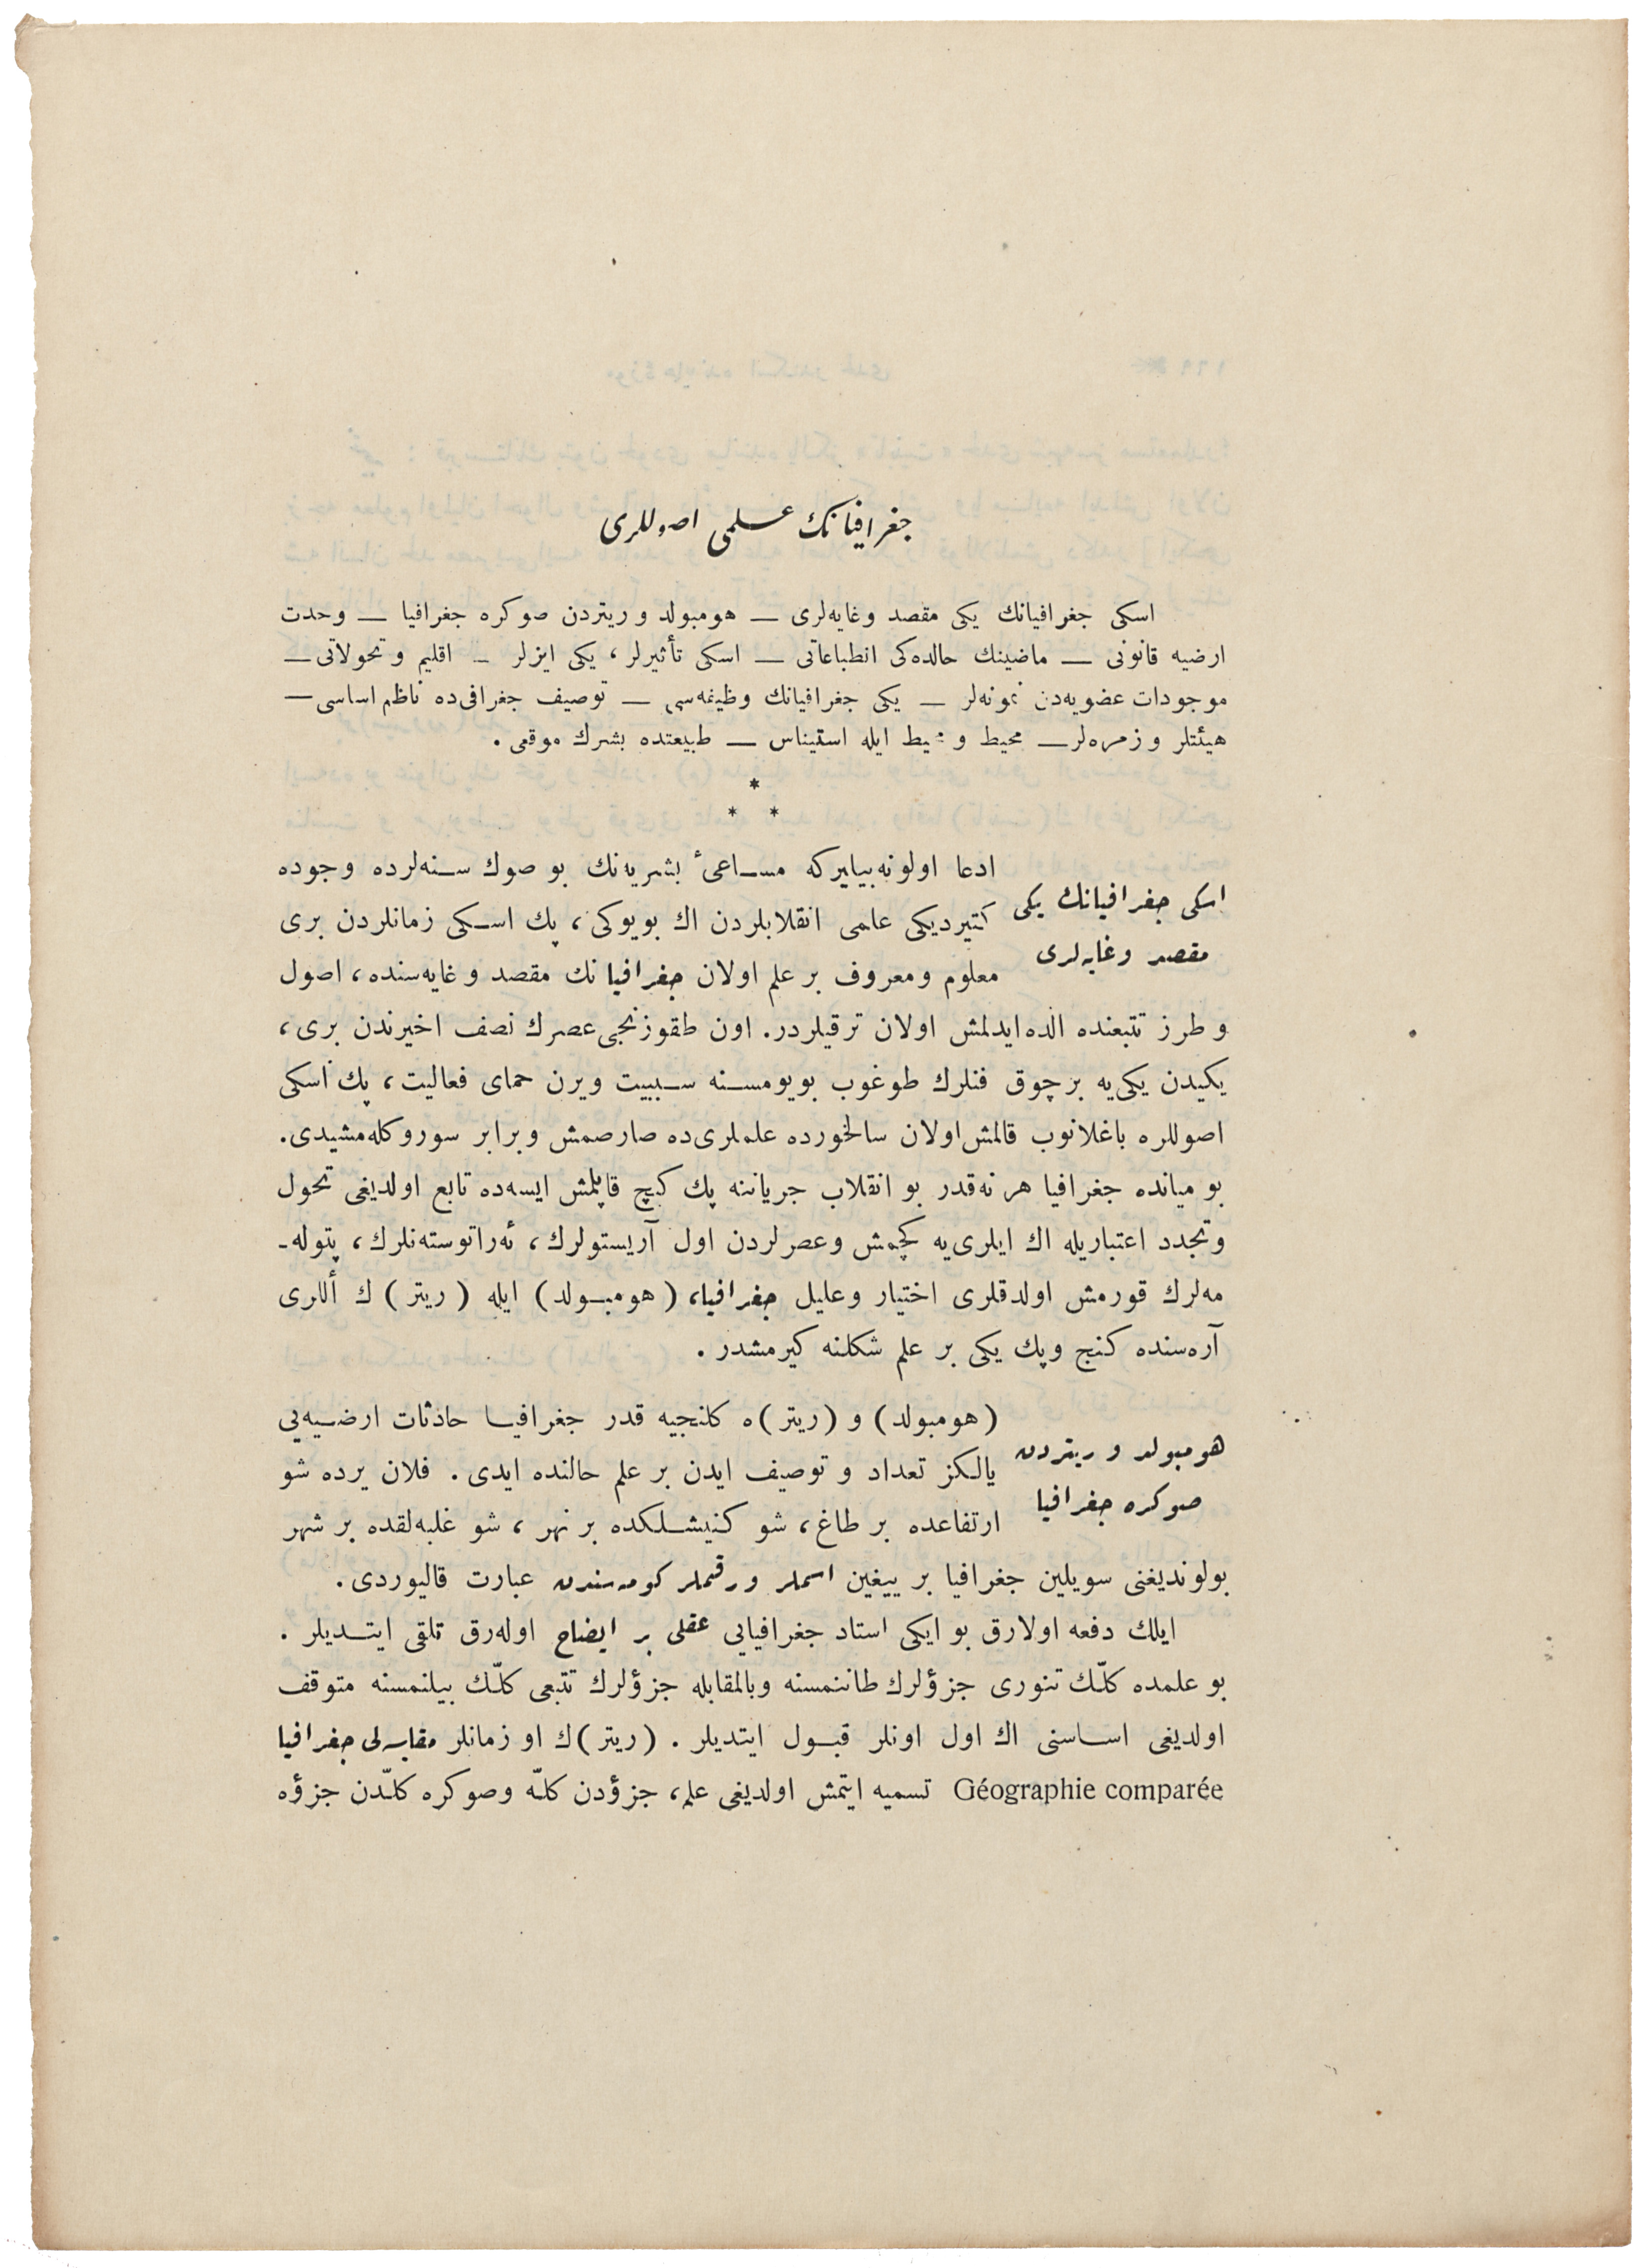 جغرافيانك علمى اصوللرى
اسكى جغرافيانك يكى مقصد وغايه‌لرى — هومبولد و ريتردن صوكره جغرافيا — وحدت
ارضيه قانونى — ماضينك حالده‌كى انطباعاتى — اسكى تأثيرلر، يكى ايزلر — اقليم و تحولاتى —
موجودات عضويه‌دن نمونه‌لر — يكى جغرافيانك وظيفه‌سى — توصيف جغرافى‌ده ناظم اساسى —
هيئتلر و زمره‌لر — محيط و محيط ايله استيناس — طبيعتده بشرك موقعى .
*
* *
اسكى جغرافيانك يكى
مقصد وغايه‌لرى
ادعا اولونه‌بيليركه مساعىٔ بشريه‌نك بو صوك سنه‌لرده وجوده
كتيرديكى علمى انقلابلردن اك بويوكى، پك اسكى زمانلردن برى
معلوم ومعروف بر علم اولان جغرافيا نك مقصد و غايه‌سنده، اصول
و طرز تتبعنده الده ايدلمش اولان ترقيلردر. اون طقوزنجى عصرك نصف اخيرندن برى،
يكيدن يكى‌يه بر چوق فنلرك طوغوب بويومسنه سببيت ويرن حماى فعاليت، پك اسكى
اصوللره باغلانوب قالمش اولان سالخورده علملرى‌ده صارصمش وبرابر سوروكله‌مشيدى.
بو ميانده جغرافيا هر نه‌قدر بو انقلاب جرياننه پك كيچ قاپلمش ايسه‌ده تابع اولديغى تحول
وتجدد اعتباريله اك ايلرى‌يه كچمش وعصرلردن اول آريستولرك، ئه‌راتوسته‌نلرك، پتوله-
مه‌لرك قورمش اولدقلرى اختيار وعليل جغرافيا، (هومبولد) ايله (ريتر) ك أللرى
آره‌سنده كنج وپك يكى بر علم شكلنه كيرمشدر .
هومبولد و ريتردن
صوكره جغرافيا
(هومبولد) و (ريتر)ه كلنجيه قدر جغرافيا حادثات ارضيه‌يى
يالكز تعداد و توصيف ايدن بر علم حالنده ايدى . فلان يرده شو
ارتفاعده بر طاغ، شو كنيشلكده بر نهر ، شو غلبه‌لقده بر شهر
بولونديغنى سويلين جغرافيا بر ييغين اسملر ورقملر كومه‌سندن عبارت قاليوردى .
ايلك دفعه اولارق بو ايكى استاد جغرافيايى عقلى بر ايضاح اوله‌رق تلقى ايتديلر .
بو علمده كلّك تنورى جزؤلرك طاننمسنه وبالمقابله جزؤلرك تتبعى كلّك بيلنمسنه متوقف
اولديغى اساسنى اك اول اونلر قبول ايتديلر . (ريتر)ك او زمانلر مقايسه‌لى جغرافيا
Géographie comparée تسميه ايتمش اولديغى علم، جزؤدن كلّه وصوكره كلّدن جزؤه